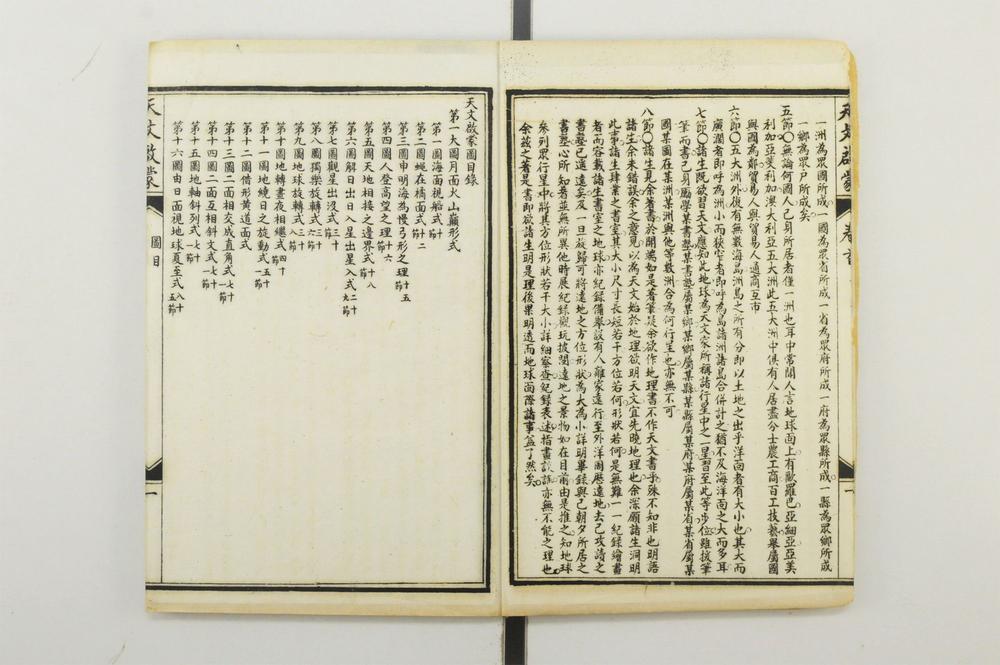 一洲為眾國所成一國為眾省所成一省為眾府所成一府為眾縣所成一縣為眾鄉所成
一鄉為眾戶所成矣
五節〇無論何國人己身所居者僅一洲也耳中常聞人言地球面上有歐羅巴亞細亞亞美
利加亞斐利加澳大利亞五大洲此五大洲中俱有人居盡分士農工商百工技藝舉屬國
與國為鄰貿易人與貿易人通商互市
六節〇五大洲外復有無數海島洲島之所有分即以土地之出乎洋面者有大小也其大而
廣濶者即呼為洲小而狹窄者即呼為島諸洲諸島合併計之猶不及海洋面之大而多耳
七節〇諸生既欲習天文應知此地球為天文家所稱諸行星中之一星習至此等步位雖拔筆
筆而書乃身屬學某書塾某書塾屬某鄉某鄉屬某縣某縣屬某府某府屬某省某省屬某
國某國在某洲某洲與他等數洲合為何行星也亦無不可
八節〇諸生見余著書於開端如是著筆疑余欲作地理書不作天文書乎殊不知非也明語
諸生余未錯誤余之意見以為天文始於地理欲明天文宜先曉地理也余深願諸生洞明
此事諸生肄業之書室其大小尺寸長短若干方位若何形狀若何是無難一一紀錄繪畫
者而容載諸生書室之地球亦紀錄備舉設有人離家遠行至外洋周歷遠地去己攻讀之
書塾已遠遠矣及一旦旋歸可將遠地之方位形狀為大為小詳明畢錄與己朝夕所居之
書塾心所知者並無所異他時展紀錄觀玩披閱遠地之景物如在目前由是推之知地球
參列眾行星中將其方位形狀若干大小詳細察查紀錄表述指畫談論亦無不能之理也
余茲之著是書即欲諸生明是理後果明透而地球面際諸事益了然矣
天文啟蒙圖目錄
第一大圖月面火山巔形式
第一圖海面視船式 十節
第二圖蠅在橘面式 十二節
第三圖申明海為慢弓形之理 十五節
第四圖人登高望之理 十六節
第五圖天地相接之邊界式 十八節
第六圖解日出日入星出星入式 二十九節
第七圖觀星出沒式 三十節
第八圖獨樂旋轉式 三十六節
第九圖地球旋轉式 三十八節
第十圖地轉晝夜相繼式 四十節
第十一圖地繞日之旋動式 五十一節
第十二圖借形黃道面式
第十三圖二面相交成直角式 七十一節
第十四圖二面互相斜交式 七十一節
第十五圖地軸斜列式 七十節
第十六圖由日面視地球夏至式 八十五節
天文啟蒙
圖目
一
天文啟蒙
卷首
一